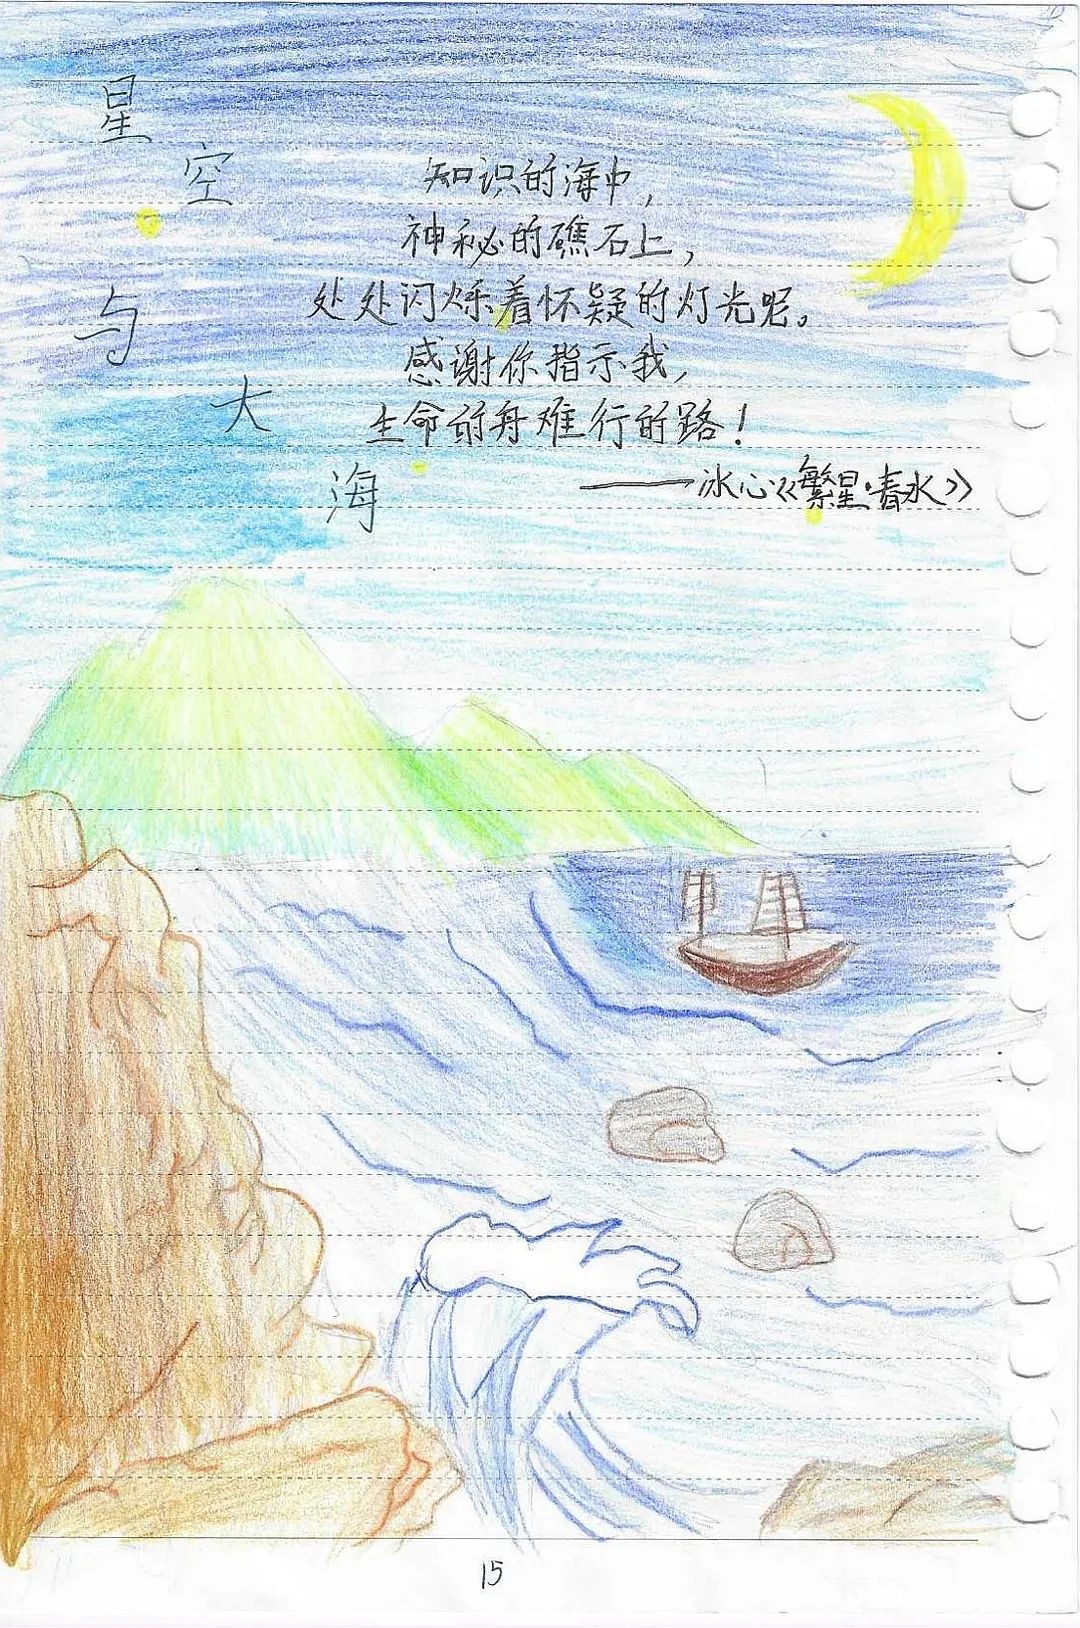 星空与大海
知识的海中，
神秘的礁石上，
处处闪烁着怀疑的灯光呢。
感谢你指示我，
生命的舟难行的路！
——冰心《繁星·春水》
15